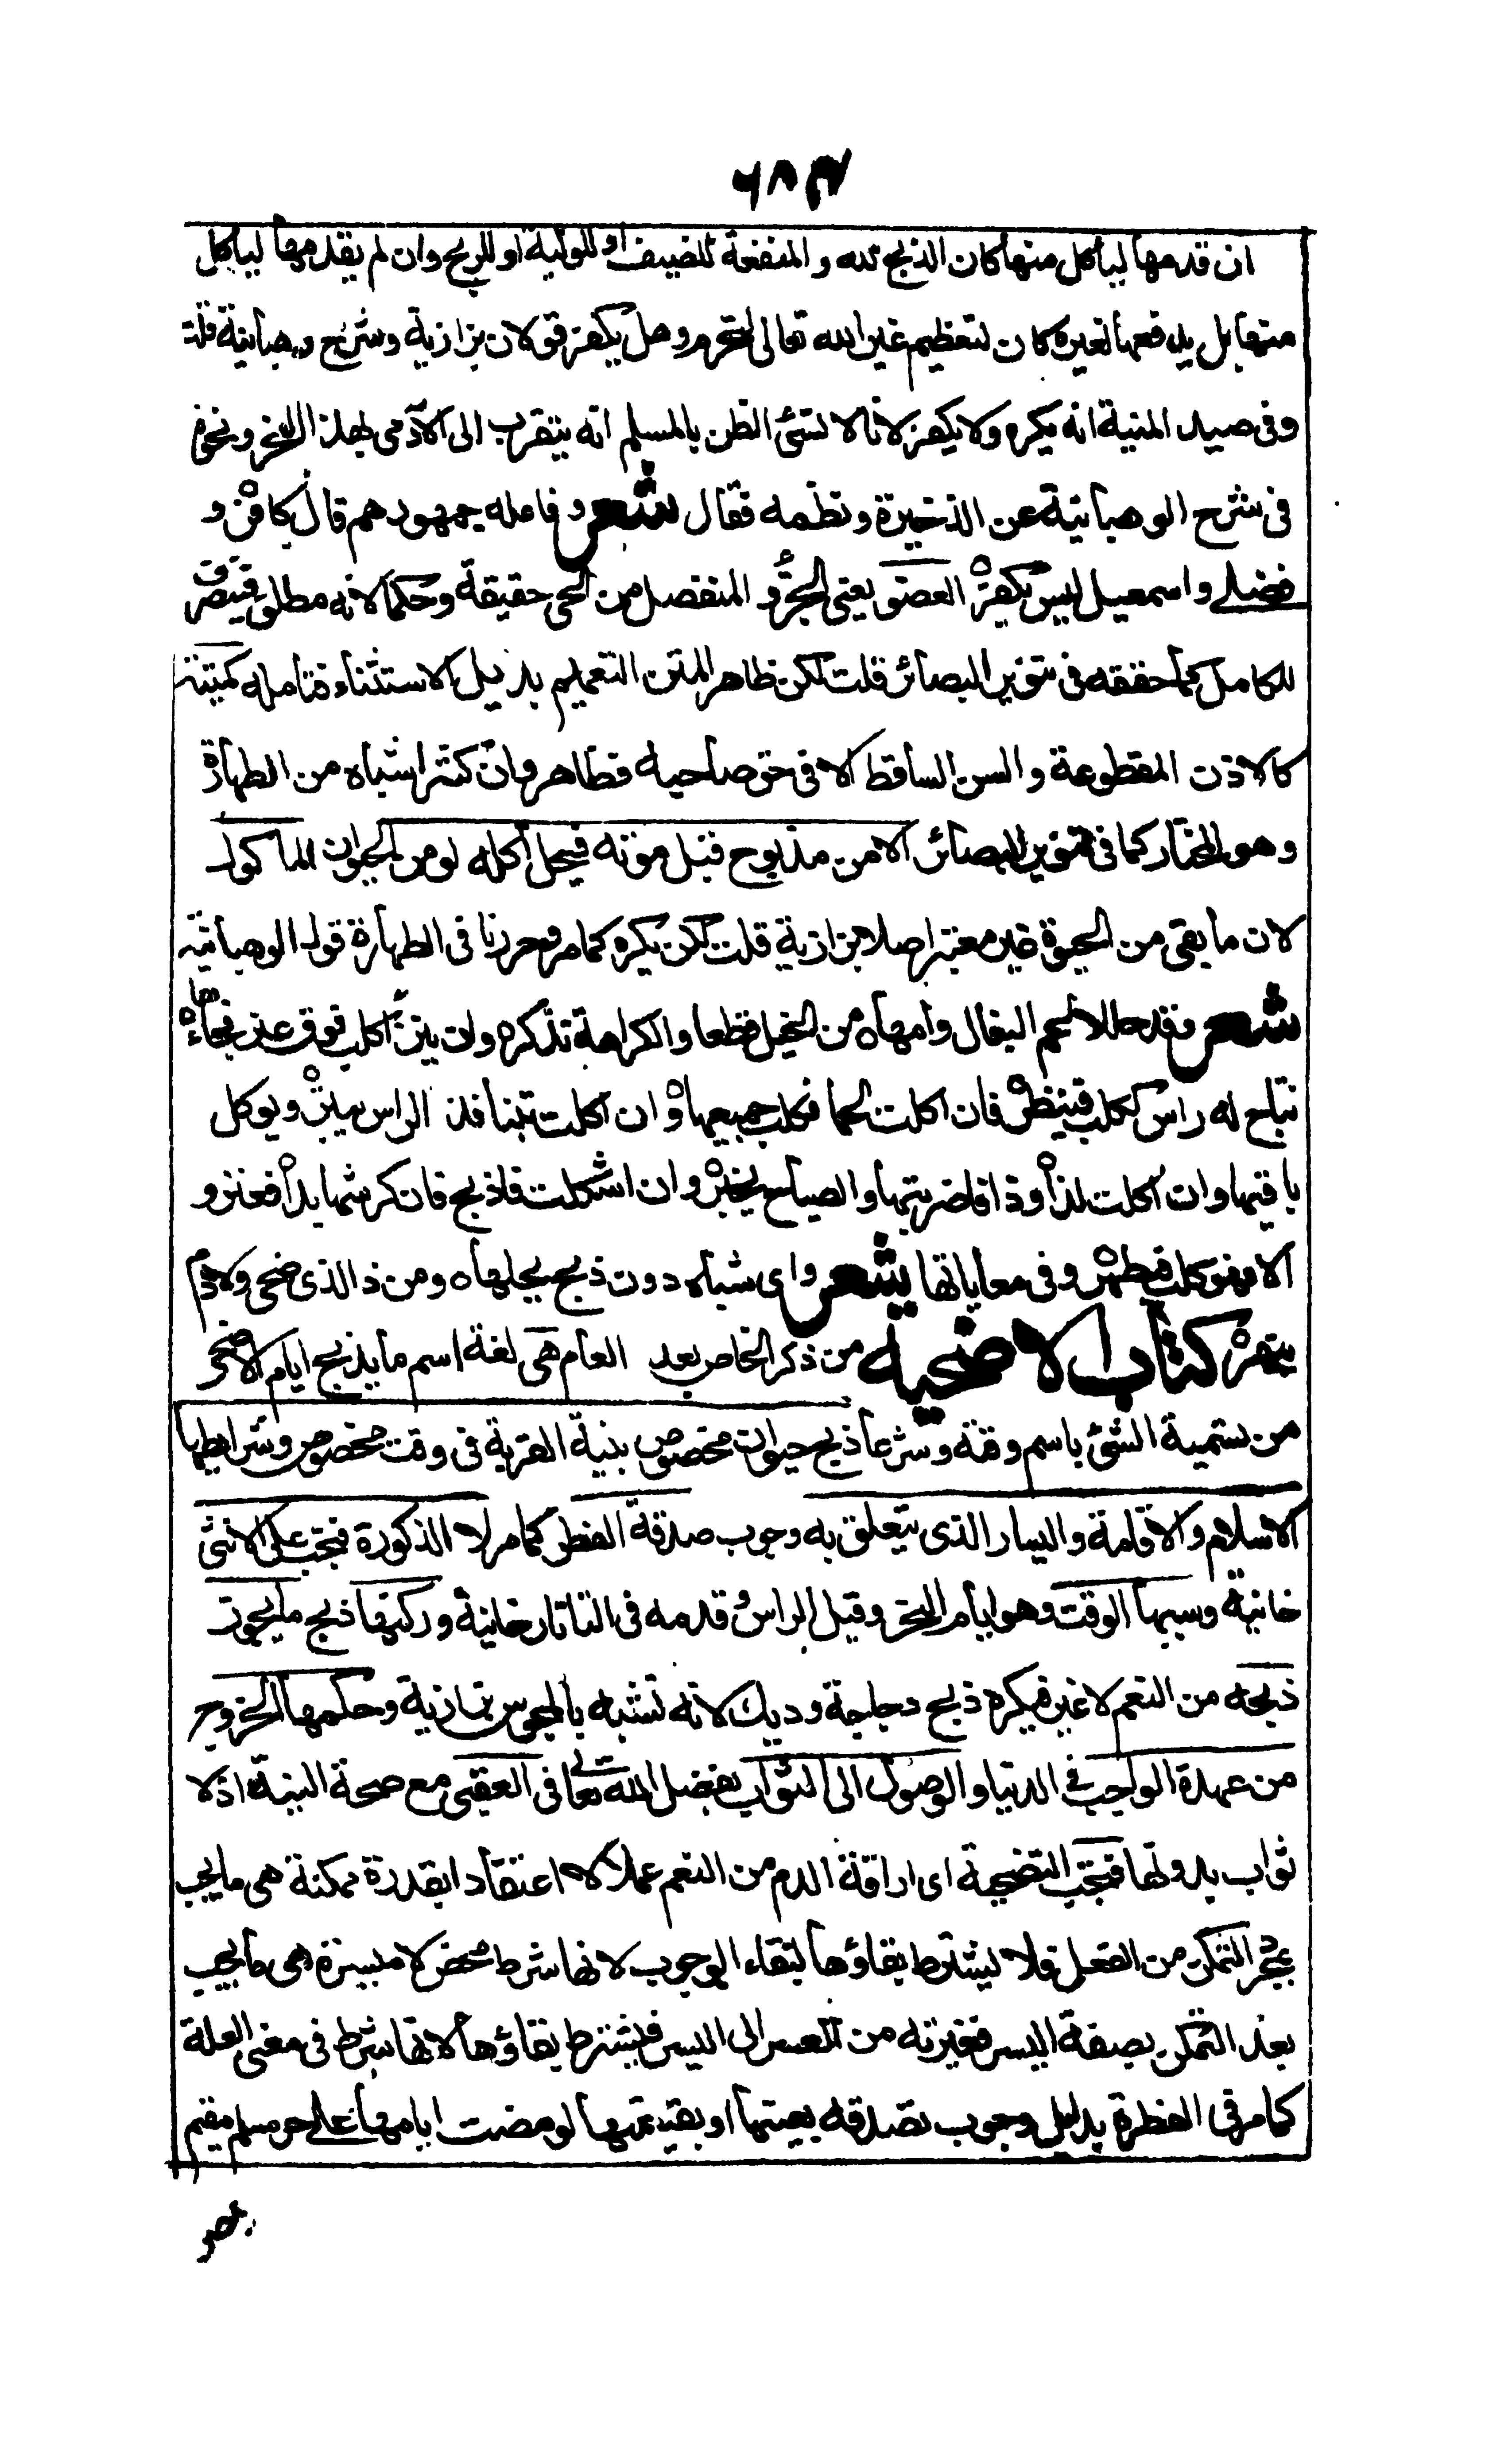 ٦٨٣
ان قدمها ليأكل منها كان الذبح لله والمنفعة للضيف او للوليمة او للربح وان لم يقدمها ليأكل
منها بل يدفعها لغيره كان لتعظيم غير الله تعالى فتحرم وهل يكفر قولان بزازية وشرح وهبانية قلت
وفى صيد المنية انه يكره ولا يكفر لانا لا نسئ الظن بالمسلم انه يتقرب الى الآدمى بهذا النحر ونحوه
فى شرح الوهبانية عن الذخيرة ونظمه فقال شعر وفاعله جمهورهم قال كافر و
فضلے واسمعيل ليس يكفر العضو يعنى الجزء المنفصل من الحى حقيقة وحكما لانه مطلق فينصرف
للكامل كما حققه فى تنوير البصائر قلت لكن ظاهر المتن التعميم بدليل الاستثناء فتامله كميتته
كالاذن المقطوعة والسن الساقط الا فى حق صاحبه فطاهر وان كثر اشباه من الطهارة
وهو المختار كما فى تنوير البصائر الا من مذبوح قبل موته فيحل اكله لو من الحيوان الماكول
لان ما بقى من الحيوة غير معتبر اصلا بزازية قلت لكن يكره كما مر وحررنا فى الطهارة قول الوهبانية
شعر وقد حللا لحم البغال وامها ه من الخيل قطعا والكراهة تذكره وان ينز كلب فوق عنز فجاءها ه
نتاج له راس ككلب فينظر ه فان اكلت لحما فكلب جميعها ه وان اكلت تبنا فذا الراس يبتر ه ويوكل
باقيها وان اكلت لذا ه وذا فاضربنها والصياح يخبر ه وان اشكلت فاذبح فان كرشها بدا ه فعنز و
الا فهو كلب فيطمر ه وفى معاياتها شعر واى شياه دون ذبح يحلها ه ومن ذا الذى ضحى ولا دم
ينهر ه كتاب الاضحية من ذكر الخاص بعد العام هى لغة اسم ما يذبح ايام الاضحى
من تسمية الشئ باسم وقته وشرعا ذبح حيوان مخصوص بنية القربة فى وقت مخصوص وشرائطها
الاسلام والاقامة واليسار الذى يتعلق به وجوب صدقة الفطر كما مر لا الذكورة فتجب على الانثى
خانية وسببها الوقت وهو ايام النحر وقيل الراس وقدمه فى التاتارخانية وركنها ذبح ما يجوز
ذبحه من النعم لا غير فيكره ذبح دجاجة وديك لانه تشبه بالمجوس بزازية وحكمها الخروج
من عهدة الواجب فى الدنيا والوصول الى الثواب بفضل الله تعالى فى العقبى مع صحة النية اذ لا
ثواب بدونها فتجب التضحية اى اراقة الدم من النعم عملا لا اعتقادا بقدرة ممكنة هى ما يجب
بمجرد التمكن من الفعل فلا يشترط بقاؤها لبقاء الوجوب لانها شرط محض لا ميسرة هى ما يجب
بعد التمكن بصفة اليسر فغيرته من العسر الى اليسر فيشترط بقاؤها لانها شرط فى معنى العلة
كما مر فى الفطرة بدليل وجوب تصدقه بعينها او بقيمتها لو مضت ايامها على حر مسلم مقيم